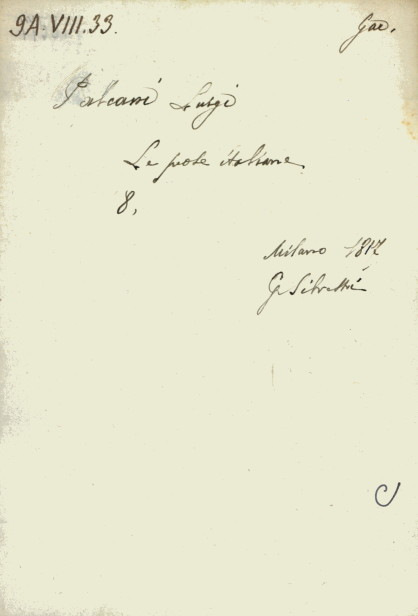 9A.VIII.33. Gae.
Palcani Luigi
Le prose italiane.
8,
Milano 1817
G Silvestri